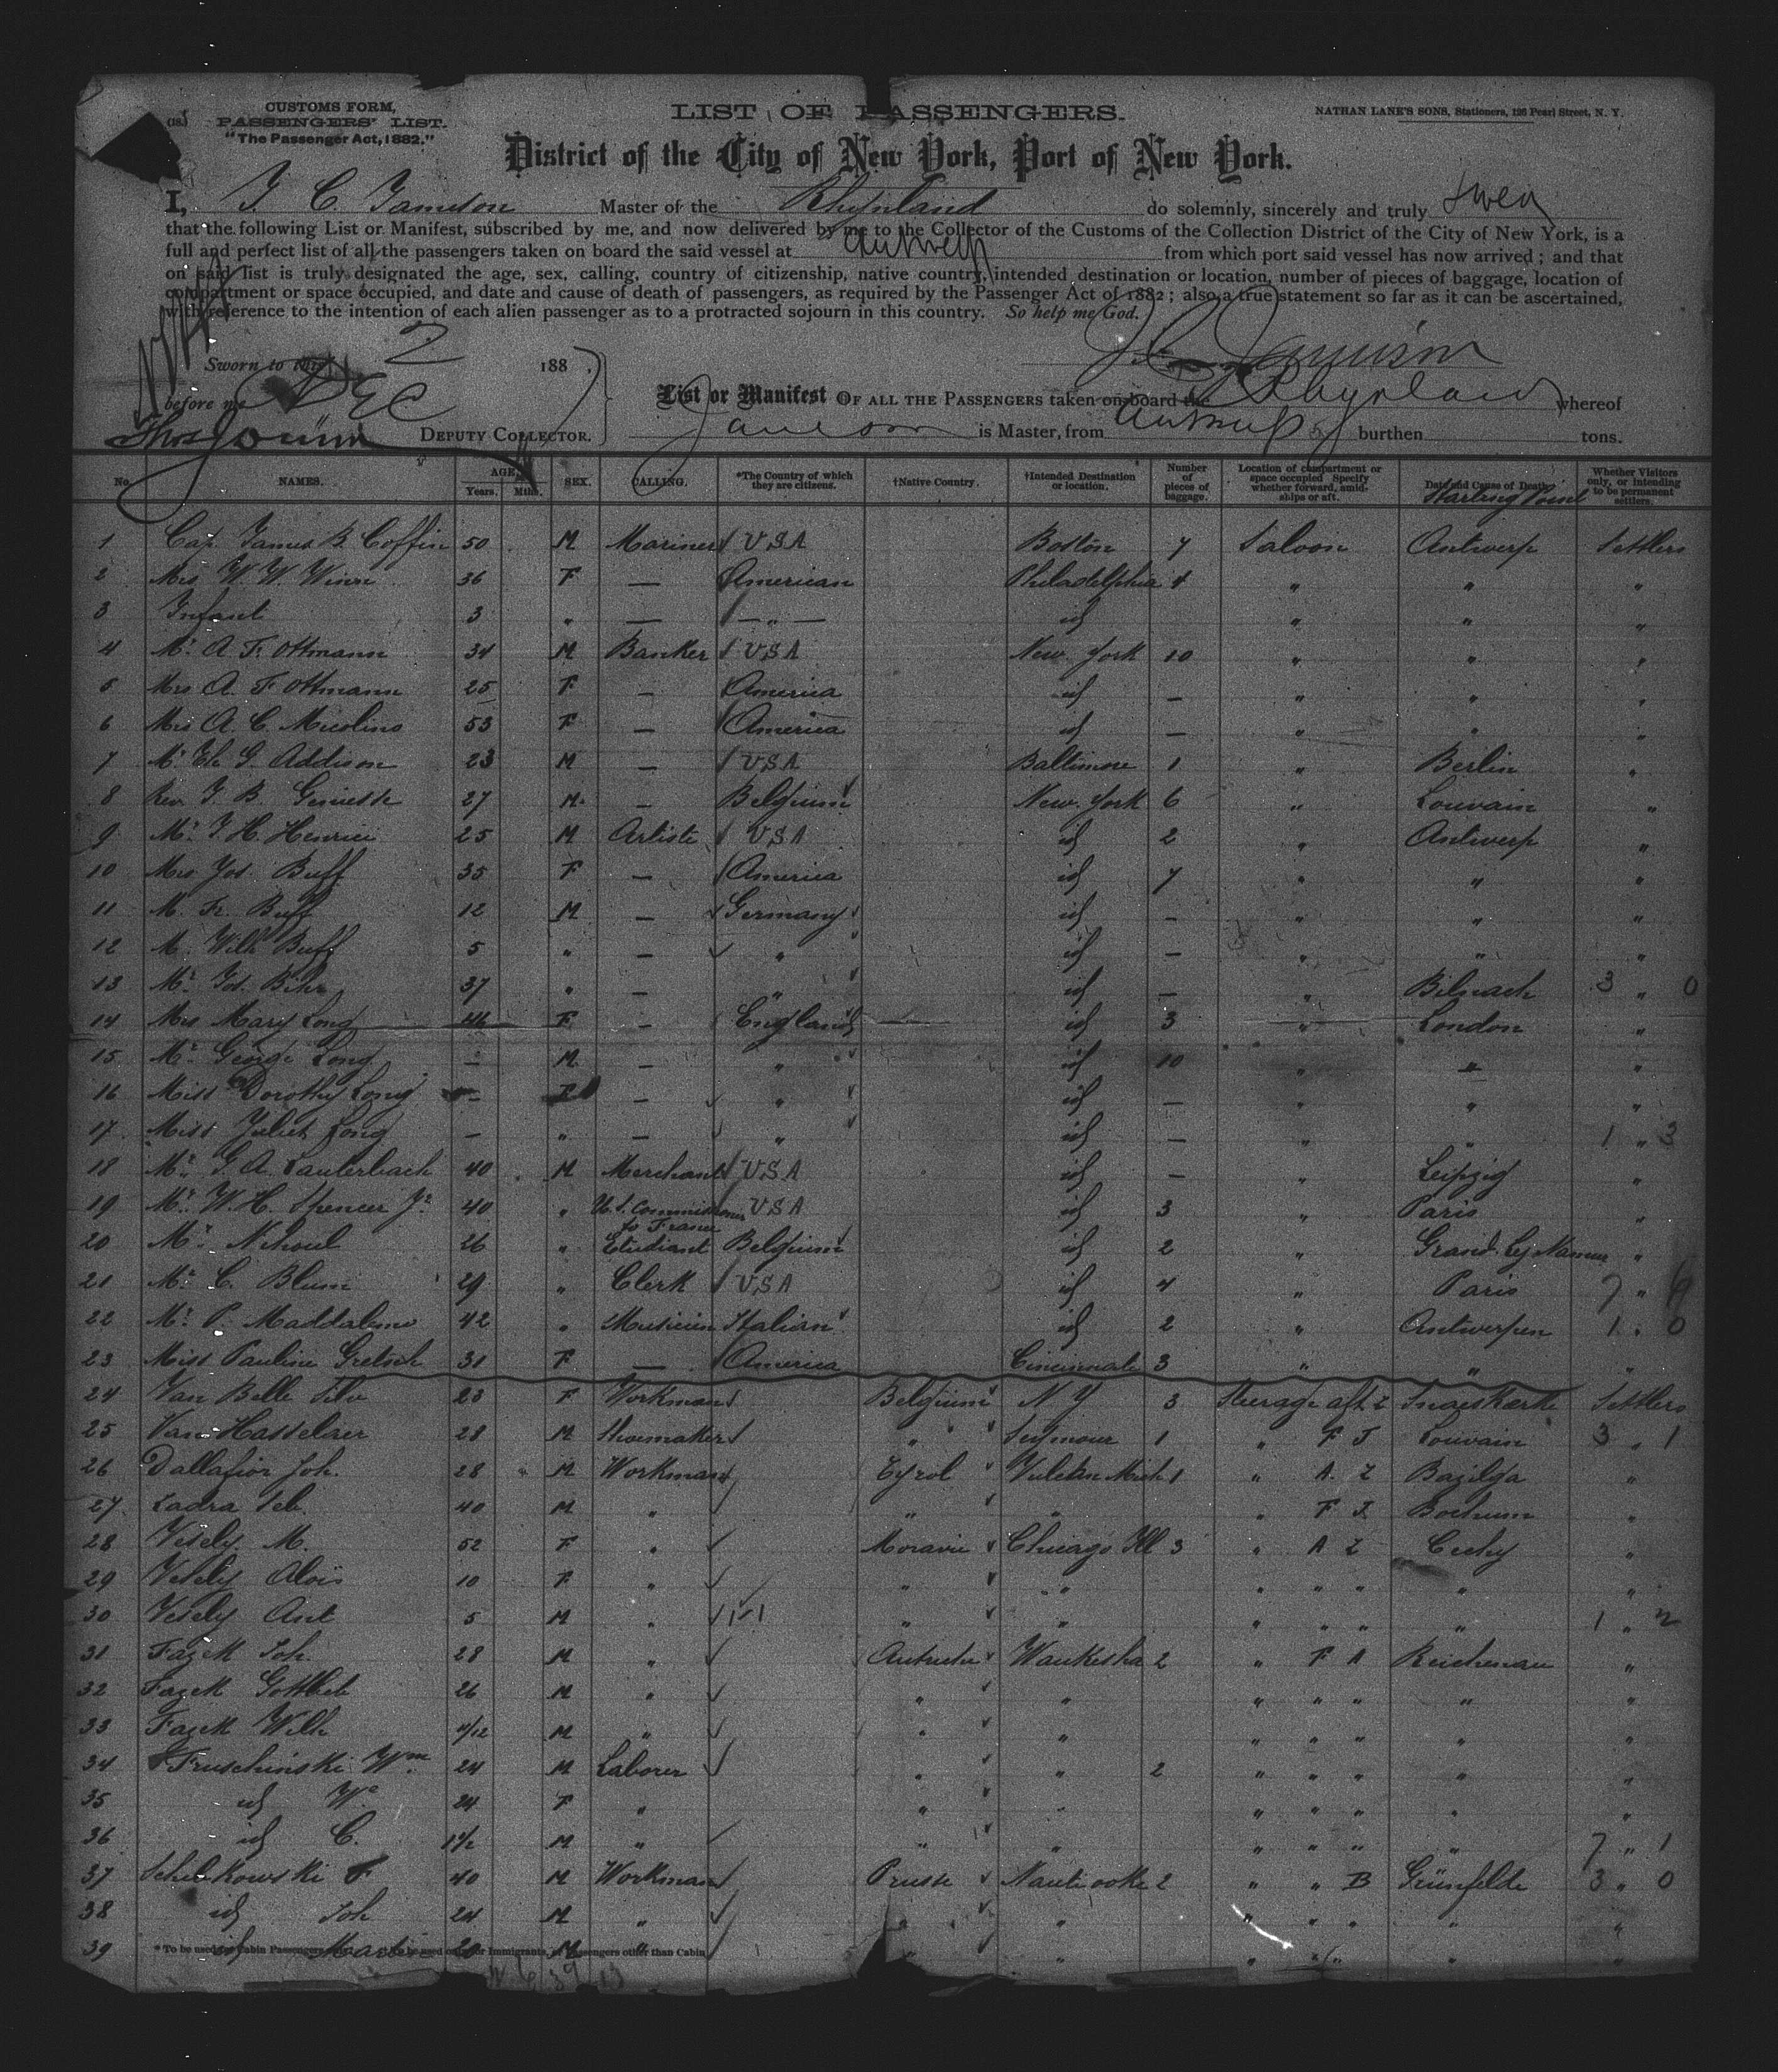 CUSTOMS FORM,
PASSENGERS' LIST.
"The Passenger Act, 1882."
LIST OF PASSENGERS.
NATHAN LANE'S SONS, Stationers, 126 Pearl Street, N. Y.
District of the City of New York, Port of New York.
I, J C Jameson Master of the Rhynland do solemnly, sincerely and truly swear
that the following List or Manifest, subscribed by me, and now delivered by me to the Collector of the Customs of the Collection District of the City of New York, is a
full and perfect list of all the passengers taken on board the said vessel at Antwerp from which port said vessel has now arrived; and that
on said list is truly designated the age, sex, calling, country of citizenship, native country, intended destination or location, number of pieces of baggage, location of
compartment or space occupied, and date and cause of death of passengers, as required by the Passenger Act of 1882; also a true statement so far as it can be ascertained,
with reference to the intention of each alien passenger as to a protracted sojourn in this country. So help me God.
Sworn to this 2 1887
before me DEC
List or Manifest OF ALL THE PASSENGERS taken on board the Rhynland whereof
DEPUTY COLLECTOR. Jameson is Master, from Antwerp burthen tons.
No. NAMES. AGE. Years. Mths. SEX. CALLING. *The Country of which they are citizens. †Native Country. †Intended Destination or location. Number of pieces of baggage. Location of compartment or space occupied Specify whether forward, amidships or aft. Date and Cause of Death. Starting Point Whether Visitors only, or intending to be permanent settlers.
1 Cap. James B. Coffin 50 M Mariner USA Boston 7 Saloon Antwerp Settlers
2 Mrs W. W. Winn 36 F — American Philadelphia 4 " " "
3 Infant 3 " — — " — id " " "
4 Mr A. F. Ottmann 34 M Banker USA New York 10 " " "
5 Mrs A. F Ottmann 25 F — America id — " " "
6 Mrs A. C. Micolino 53 F — America id — " " "
7 Mr Eli G. Addison 23 M — USA Baltimore 1 " Berlin "
8 Rev. J. B. 27 M. — Belgium New York 6 " Louvain "
9 Mr J. H. Henrici 25 M Artiste USA id 2 " Antwerp "
10 Mrs Jos. Buff 35 F — America id 7 " " "
11 M. Fr. Buff 12 M — Germany id — " " "
12 M. Wilh Buff 5 " — " id — " " "
13 Mr Jos. Bihr 37 " — " id — " 3 " 0
14 Mrs Mary Long 46 F — England id 3 " London "
15 Mr George Long — M — " id 10 " " "
16 Miss Dorothy Long — F — " id — " " "
17 Miss Juliet Long — " — " id — " " 1 " 3
18 Mr G. A. Lauterbach 40 M Merchant USA id — " Leipzig "
19 Mr W. H. Spencer Jr 40 " U.S. Commissioner to France USA id 3 " Paris "
20 Mr Nihoul 26 " Etudiant Belgium id 2 " Grand Lez Namur "
21 Mr C. Blum 29 " Clerk USA id 4 " Paris 7 " 6
22 Mr P. Maddaleno 42 " Musicien Italian id 2 " Antwerpen 1 " 0
23 Miss Pauline Gretsch 31 F — America Cincinnati 3 " " "
24 Van Belle Silv 23 F Workman Belgium N Y 3 Steerage aft Z Snaeskerke Settlers
25 Van Hasselaer 28 M Shoemaker " Seymour 1 " F J Louvain 3 " 1
26 Dallafior Joh. 28 " M Workman Tyrol Vulcan Mich 1 " A. Z "
27 Zadra Seb. 40 M " " " " F J Bochum "
28 Vesely M. 52 F " Moravie Chicago Ill 3 " A Z "
29 Vesely Alois 10 F " " " " " " " "
30 Vesely Ant 5 M " " " " " " " 1 " 2
31 Fazek Joh. 28 M " Autriche Waukesha 2 " F A Reichenau "
32 Fazek Gottlieb 26 M " " " " " " " "
33 Fazek Wilh 11/12 M " " " " " " "
34 Fruschinski Wm 24 M Laborer " " 2 " " " " "
35 id We 24 F " " " " " " " "
36 id C. 1 1/2 M " " " " " " 7 " 1
37 Schulkowski F 40 M Workman Prusse Nanticoke 2 " " B Grünfelde 3 " 0
38 id Joh 24 M " " " " " " " "
39 id Martin 20 M " " " " " " "
* To be used for Cabin Passengers only. To be used only for Immigrants, or Passengers other than Cabin